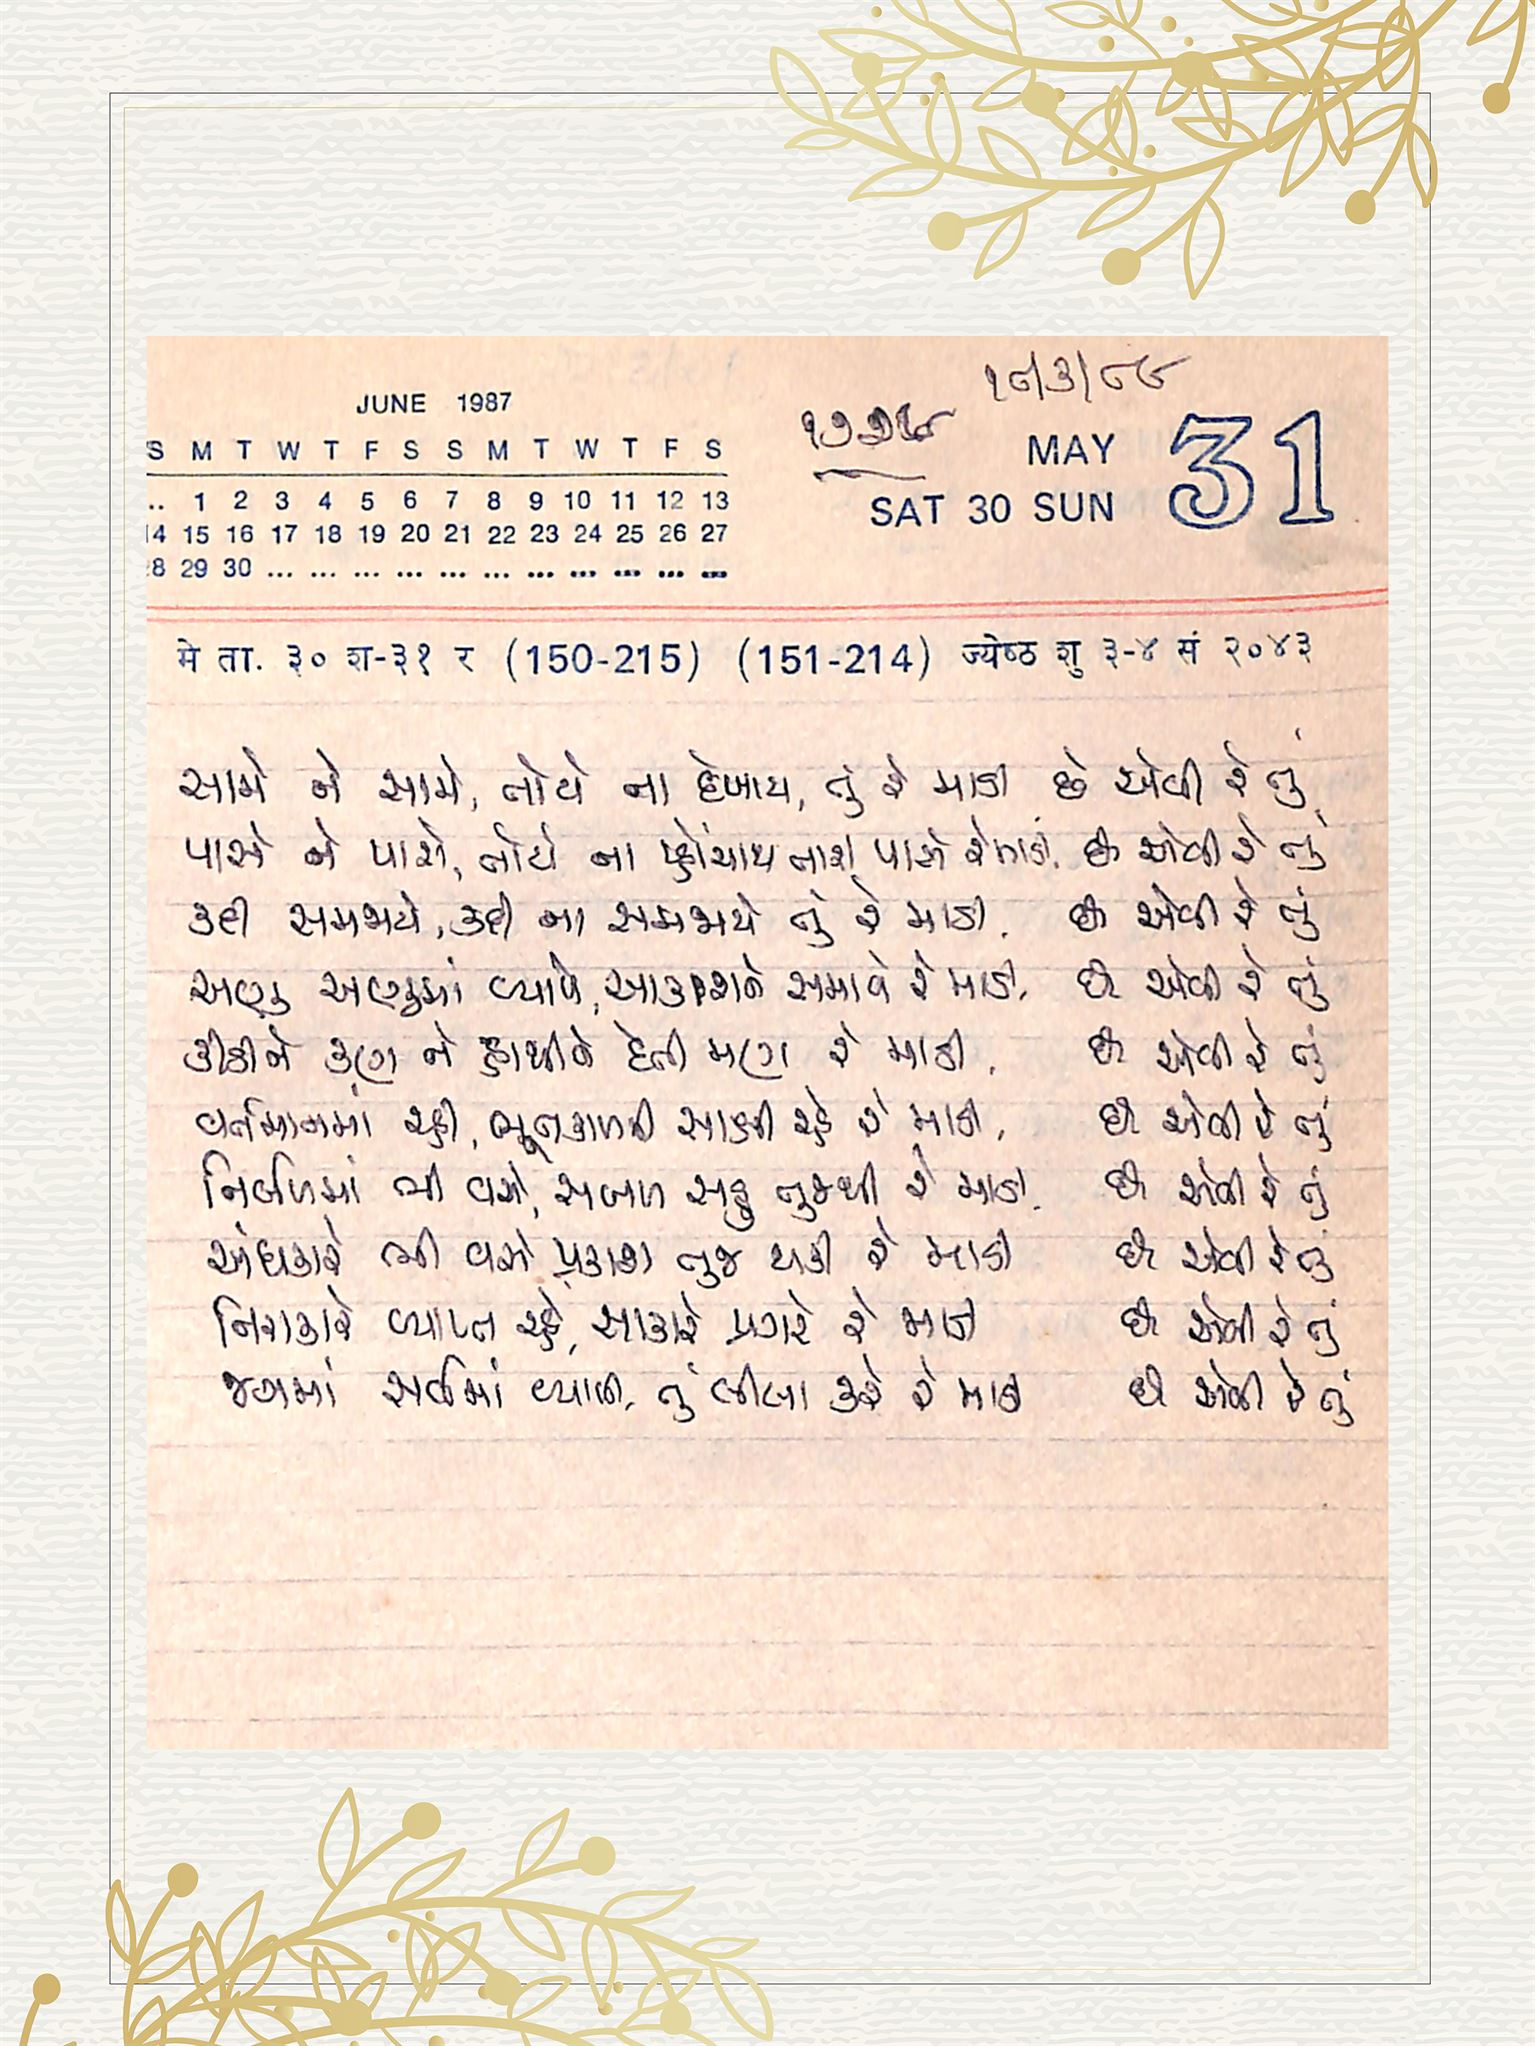 ૧૮/૩/૮૯
JUNE 1987
MAY 31
SAT 30 SUN
S M T W T F S S M T W T F S
.. 1 2 3 4 5 6 7 8 9 10 11 12 13
14 15 16 17 18 19 20 21 22 23 24 25 26 27
28 29 30 ... ... ... ... ... ... ... ... ... ... ...
मे ता. ३० श-३१ र (150-215) (151-214) ज्येष्ठ शु ३-४ सं २०४३
સામે ને સામે, તોયે ના દેખાય, તું રે માડી છે એવી રે તું
પાસે ને પાસે, તોયે ના પ્હોંચાય તારી પાસે રે માડી, છે એવી રે તું
કદી સમજાયે, કદી ના સમજાયે તું રે માડી, છે એવી રે તું
અણુ અણુમાં વ્યાપે, આકાશને સમાવે રે માડી, છે એવી રે તું
કીડીને કણ ને હાથીને દેતી મણ રે માડી, છે એવી રે તું
વર્તમાનમાં રહી, ભૂતકાળની સાક્ષી રહે રે માડી, છે એવી રે તું
નિર્બળમાં ભી વસે, સબળ સહુ તુજથી રે માડી, છે એવી રે તું
અંધકારે ભી વસે પ્રકાશ તુજ થકી રે માડી છે એવી રે તું
નિરાકારે વ્યાપ્ત રહે, સાકારે પ્રગટે રે માડી છે એવી રે તું
જગમાં સર્વમાં વ્યાપી, તું લીલા કરે રે માડી છે એવી રે તું